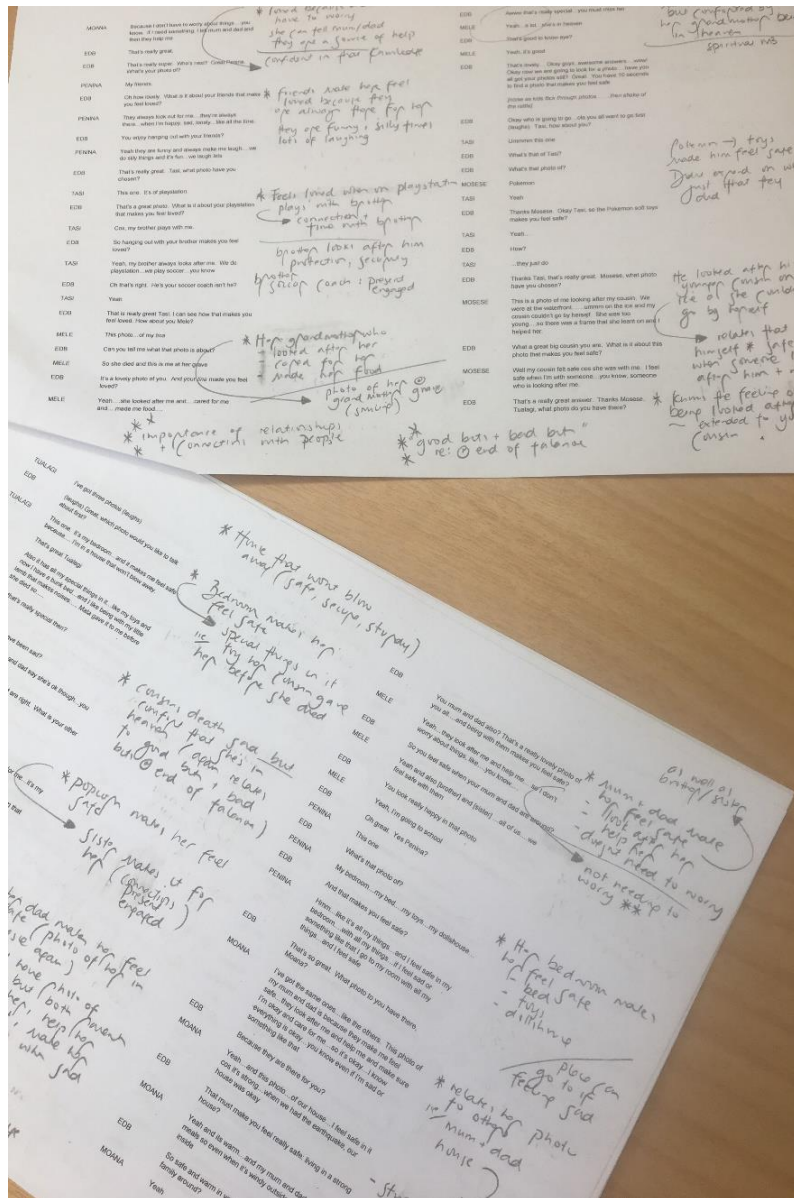 MOANA Because I don't have to worry about things... you
know, if I need something, I tell mum and dad and
then they help me
EDB That's really great.
EDB That's really super. Who's next? Great Penina,
what's your photo of?
PENINA My friends
EDB Oh how lovely. What is it about your friends that make
you feel loved?
PENINA They always look out for me... they're always
there... when I'm happy, sad, lonely... like all the time.
EDB You enjoy hanging out with your friends?
PENINA Yeah they are funny and always make me laugh... we
do silly things and it's fun...we laugh lots
EDB That's really great. Tasi, what photo have you
chosen?
TASI This one. It's of playstation
EDB That's a great photo. What is it about your playstation
that makes you feel loved?
TASI Cos, my brother plays with me.
EDB So hanging out with your brother makes you feel
loved?
TASI Yeah, my brother always looks after me. We do
playstation...we play soccer...you know
EDB Oh that's right. He's your soccer coach isn't he?
TASI Yeah
EDB That is really great Tasi, I can see how that makes you
feel loved. How about you Mele?
MELE This photo...of my
EDB Can you tell me what that photo is about?
MELE So she died and this is me at her grave
EDB It's a lovely photo of you. And your made you feel
loved?
MELE Yeah... she looked after me and...cared for me
and... made me food...
* loved because
have to worry
she can tell mum/dad
they are a source of help
confident in that knowledge
* friends make her feel
loved because they
are always there for her
they are funny + silly times
lots of laughing
* Feels loved when on playstation
plays with brother
connection +
time with brother
brother looks after him
protection, security
brother
soccer coach: present
engaged
* Her grandmother who
- looked after her
- cared for her
- made her food
photo of her @
grand mother grave
(smiling)
* importance of relationships
+ connections with people
EDB Awww that's really special...you must miss her
MELE Yeah... a bit...she's in heaven
EDB That's good to know eye?
MELE Yeah, it's good
EDB That's lovely... Okay guys, awesome answers... wow!
Okay now we are going to look for a photo... have you
got all your photos still? Great. You have 10 seconds
to find a photo that makes you feel safe
EDB Okay who is going to go
(laughs). Tasi, how about you?
TASI Ummmm this one
EDB What's that of Tasi?
EDB What's that photo of?
MOSESE Pokemon
TASI Yeah
EDB Thanks Mosese. Okay Tasi, so the Pokemon soft toys
makes you feel safe?
TASI Yeah...
EDB How?
TASI ...they just do
EDB Thanks Tasi, that's really great. Mosese, what photo
have you chosen?
MOSESE This is a photo of me looking after my cousin. We
were at the waterfront... ummm on the ice and my
cousin couldn't go by herself. She was too
young...so there was a frame that she leant on and I
helped her.
EDB What a great big cousin you are. What is it about this
photo that makes you feel safe?
MOSESE Well my cousin felt safe cos she was with me. I feel
safe when I'm with someone...you know, someone
who is looking after me.
EDB That's a really great answer. Thanks Mosese.
Tualagi, what photo do you have there?
her grandmother
in heaven
spiritual
Pokemon → toys
made him feel safe
just that they
did
He looked after his
younger cousin on
go by herself
relates that
himself * safe
when someone
after him
* Knows the feeling of
being looked after
extended to
cousin
* "good buts + bad buts"
re: @ end of talanoa
TUALAGI I've got three photos (laughs)
EDB (laughs) Great, which photo would you like to talk
about first?
TUALAGI This one. It's my bedroom...and it makes me feel safe
because... I'm in a house that won't blow away.
That's great Tualagi
Also it has all my special things in it...like my toys and
now I have a bunk bed...and I like being with my little
lamb that makes noises.... Meta gave it to me before
she died so....
that's really special then?
been sad?
and dad say she's ok though...you
are right. What is your other
* Home that wont blow
away (safe, secure, sturdy)
* Bedroom makes her
feel safe
special things in it
ie toy her cousin gave
her before she died
* cousins death sad but
comfort that she's in
heaven (again relates
to good buts + bad
buts @ end of talanoa)
* popcorn makes her feel
safe
sister makes it for
her (connections
present
engaged)
dad makes her feel
(photo of her in
photo of
but both
help her
make her
when sad
EDB You mum and dad also? That's a really lovely photo of
you all...and being with them makes you feel safe?
MELE Yeah...they look after me and help me...so I don't
worry about things, like...you know...
EDB So you feel safe when your mum and dad are around?
MELE Yeah and also [brother] and [sister]....all of us... we
feel safe with them
EDB You look really happy in that photo
MELE Yeah, I'm going to school
EDB Oh great. Yes Penina?
PENINA This one
EDB What's that photo of?
PENINA My bedroom...my bed...my toys...my dollshouse
EDB And that makes you feel safe?
PENINA Hmm...like it's all my things...and I feel safe in my
bedroom...with all my things...if I feel sad or
something like that I go to my room with all my
things...and I feel safe
EDB That's so great. What photo to you have there,
Moana?
MOANA I've got the same ones...like the others. This photo of
my mum and dad is because they make me feel
safe...they look after me and help me and make sure
I'm okay and care for me...so it's okay...I know
everything is okay...you know even if I'm sad or
something like that
EDB Because they are there for you?
MOANA Yeah...and this photo...of our house...I feel safe in it
cos it's strong...when we had the earthquake, our
house was okay
EDB That must make you feel really safe, living in a strong
house?
MOANA Yeah and its warm...and my mum and dad
meals so even when it's windy outside
inside
EDB So safe and warm in
family around?
MOANA Yeah
as well as
brother/sister
* Mum + dad make
her feel safe
- look after her
- help her
- doesnt need to worry
not needing to
worry **
* Her bedroom makes
her feel safe
- bed
- toys
- dollshouse
place can
go to if
feeling sad
* relates her photo
to others
ie Mum + dad
house